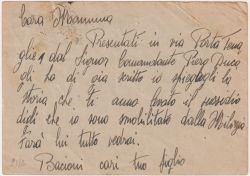 Cara Mamma
Presentati in via Porta Tena
glie 1 dal Signor Comandante Piero Duce
gli ho di già scritto io spiegogli la
storia che ti anno levato il sussidio
digli che io sono smobilitato dalla Milizia
farà lui tutto vedrai.
Bacioni cari tuo figlio